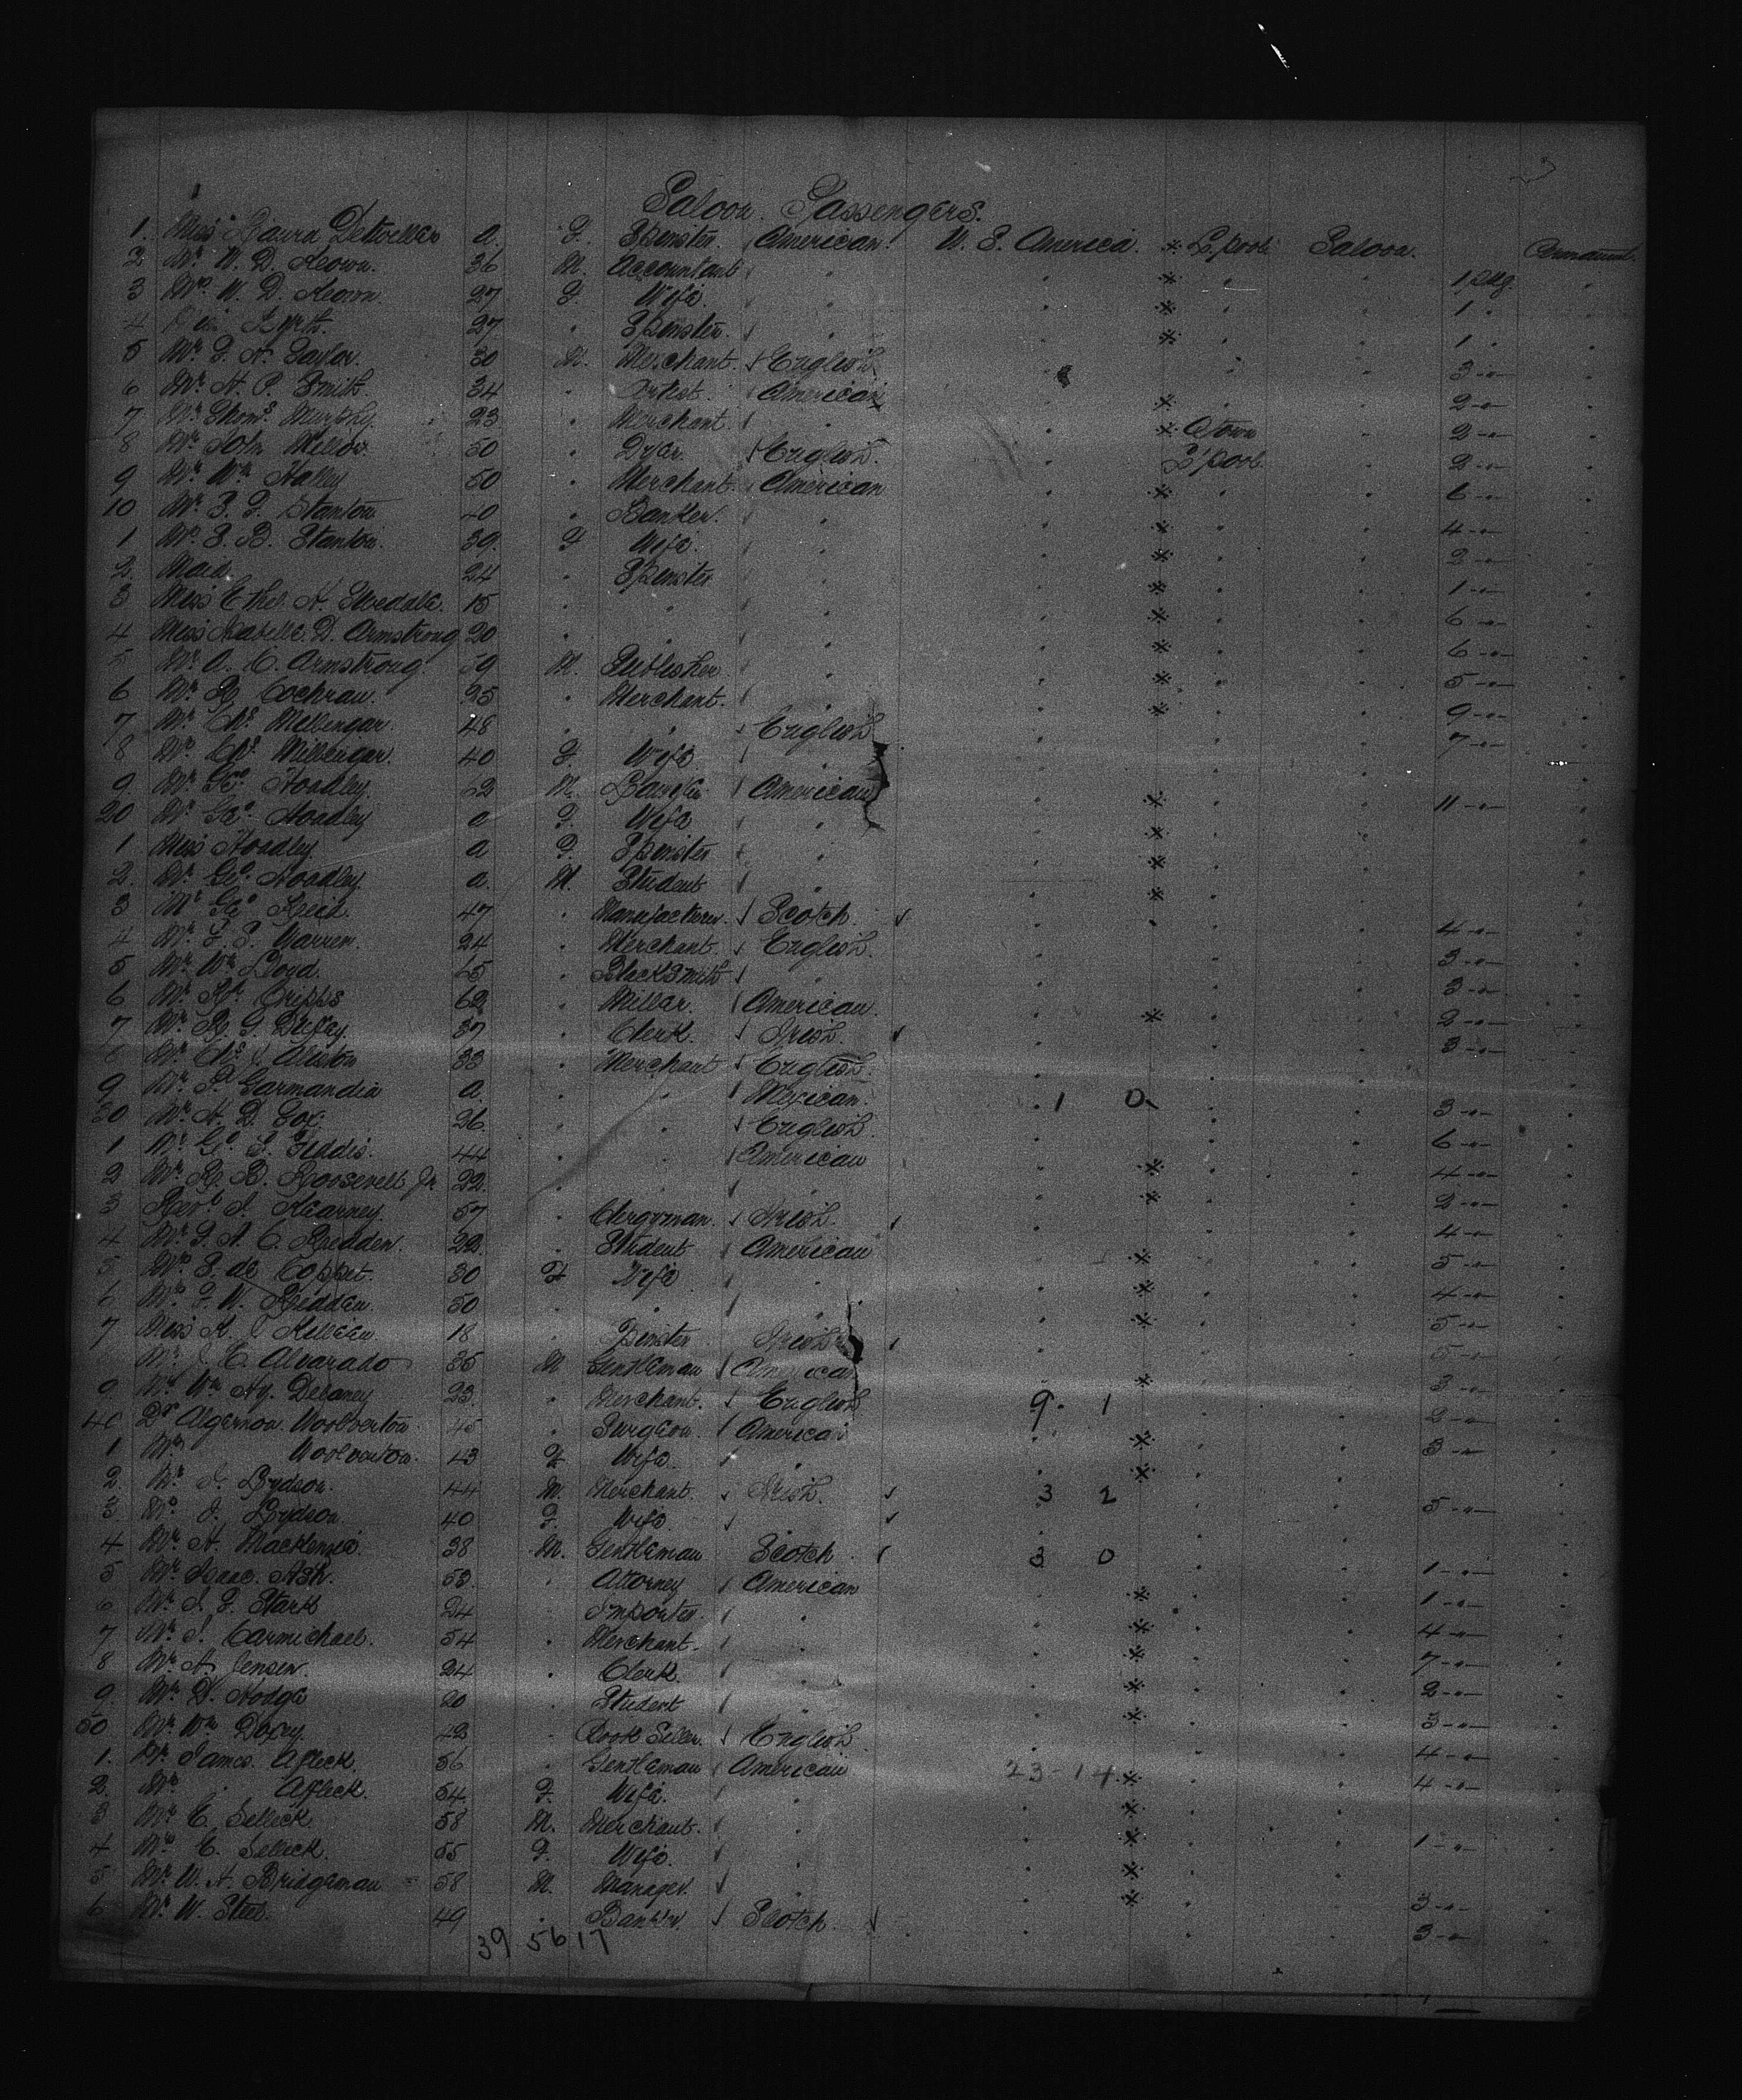 Saloon Passengers.
1. Miss Laura Detwiller a. F. Spinster. American U. S. America. L'pool Saloon. Permanent
2 Mr. W. D. Keown. 36 M. Accountant " " " 1 pkg.
3 Mrs. W. D. Keown. 27 F. Wife. " " " 1 "
4 Miss 27 " Spinster. " " " 1 "
5 Mr. 30 M. Merchant. English " 3 -"-
6 Mr. H. P. Smith. 34 " Artist. American " " 2 -"-
7 Mr. Thoms. Murphy. 23 " Merchant. " " Q'town " 2 -"-
8 Mr. John Mellor. 50 " Dyer. English. " L'pool. " 2 -"-
9 Mr. Wm. Halley 50 " Merchant. American " " " 6 -"-
10 Mr. Stanton 40 " Banker. " " " " 4 -"-
1 Mrs. Stanton. 39. F Wife. " " " " 2 -"-
2. Maid. 24 " Spinster " " " " 1 -"-
3 Miss Ethel H. 15 " " " " " " 6 -"-
4 Miss D. Armstrong 20 " " " " " " 6 -"-
5 Mr. A. C. Armstrong. 59 M. Publisher " " " " 5 -"-
6 Mr. R. Cochran. 25 " Merchant. " " " " 9 -"-
7 Mr. Chs. 48 " " English " " " 7 -"-
8 Mrs. Chs. 40 F. Wife. " " " "
9. Mr. Geo. Hoadley. 62 M. American " " " 11 -"-
20 Mrs. Geo. Hoadley a F. Wife " " " "
1 Miss Hoadley a F. Spinster " " " "
2. Mr. Geo. Hoadley a. M. Student " " " "
3 Mr. Geo. Reid. 47 " Manufacturer. Scotch. " " " 4 -"-
4 Mr. Warren. 24 " Merchant. English. " " " 3 -"-
5 Mr. Wm. 65 " Blacksmith " " " " 3 -"-
6 Mr. Cripps 62 " Miller. American. " " " 2 -"-
7 Mr. 37 " Clerk. Irish. " " " 3 -"-
8 Mr. Chs. 33 " Merchant English. " " "
9 Mr. Garmandia a. " " Mexican. 1 0 " " 3 -"-
30 Mr. H. D. 26. " " English. " " " 6 -"-
1 Mr. Geo. 44 " " American " " " 4 -"-
2 Mr. R. B. Roosevelt Jr 22. " " " " " " 2 -"-
3 Revd. J. Kearney. 57 " Clergyman. Irish. " " " 4 -"-
4 Mr. Redden. 22. " Student American " " " 5 -"-
5 Mrs. de Coppet. 30 F Wife " " " " 4 -"-
6 Mrs. F. W. Redden. 50 " " " " " " 5 -"-
7 Miss Killeen. 18 " Spinster Irish " " " 5 -"-
Mr. C. Alvarado 35 M Gentleman American " " " 3 -"-
9 Mr. Wm. Hy. Delaney 23. " Merchant. English 9. 1 " " 2 -"-
40 Dr. Algernon Woolverton 45 " Surgeon. American " " " 3 -"-
1 Mrs. Woolverton. 43 F Wife. " " " "
2. Mr. J. Lydson. 44 M. Merchant. Irish. 3 2 " " 5 -"-
3. Mrs. J. Lydson 40 F. Wife " " "
4 Mr. H. Mackenzie. 38 M. Gentleman Scotch 3 0 " " 1 -"-
5 Mr. Isaac. Ash. 53. " Attorney American " " " 1 -"-
6 Mr. Stark 24 " Importer. " " " " 4 -"-
7 Mr. J. Carmichael. 54 " Merchant. " " " " 7 -"-
8 Mr. A. Jensen. 24 " Clerk " " " " 2 -"-
9. Mr. D. Hodge 20 " Student " " " " 3 -"-
50 Mr. Wm. Doxey. 42 " Book Seller. English. " " " 4 -"-
1. Mr. James. Afleck. 56 " Gentleman American 23-14 " " 4 -"-
2. Mrs. " Afleck. 54. F. Wife. " " " "
3 Mr. E. Selleck. 58 M. Merchant. " " " " 1 -"-
4 Mrs. E. Selleck. 55 F. Wife. " " " "
5 Mr. W. H. Bridgeman 58 M. Manager. " " " " 3 -"-
6 Mr. W. Steel. 49 " Banker. Scotch. " " " 3 -"-
39 56 17